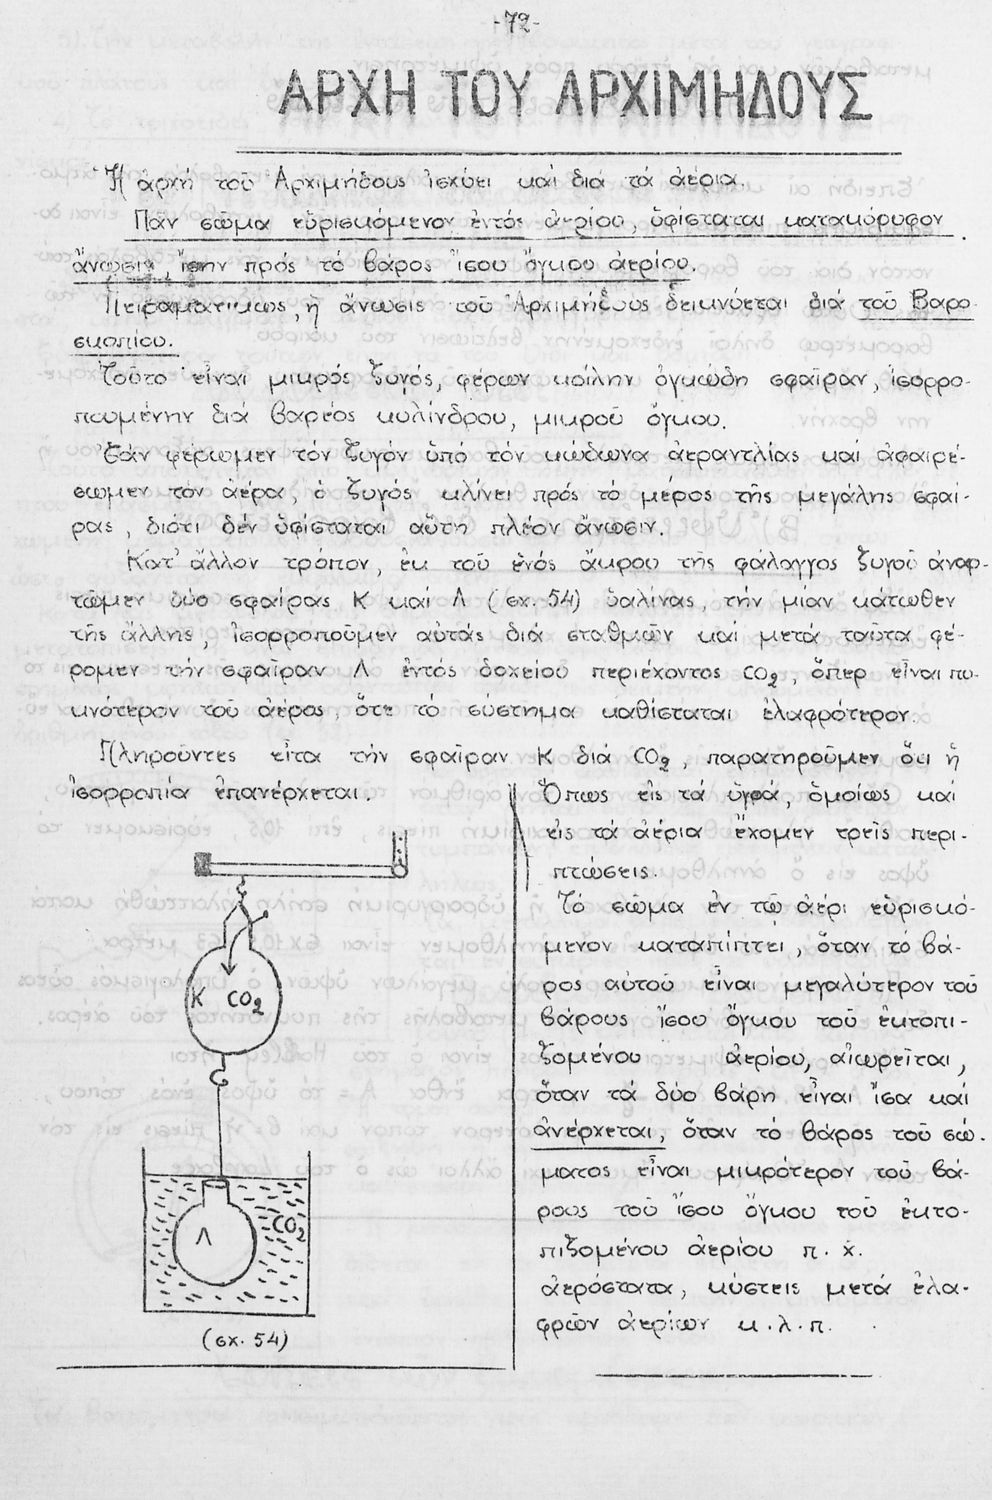 -72-
ΑΡΧΗ ΤΟΥ ΑΡΧΙΜΗΔΟΥΣ
Ἡ ἀρχή τοῦ Ἀρχιμήδους ἰσχύει καί διά τά ἀέρια.
Πᾶν σῶμα εὑρισκόμενον ἐντός ἀερίου, ὑφίσταται κατακόρυφον
ἄνωσιν, ἴσην πρός τό βάρος ἴσου ὄγκου ἀερίου.
Πειραματικῶς, ἡ ἄνωσις τοῦ Ἀρχιμήδους δεικνύεται διά τοῦ Βαρο-
σκοπίου.
Τοῦτο εἶναι μικρός ζυγός, φέρων κοίλην ὀγκώδη σφαῖραν, ἰσορρο-
πωμένην διά βαρέος κυλίνδρου, μικροῦ ὄγκου.
Ἐάν φέρωμεν τόν ζυγόν ὑπό τόν κώδωνα ἀεραντλίας καί ἀφαιρέ-
σωμεν τόν ἀέρα, ὁ ζυγός κλίνει πρός τό μέρος τῆς μεγάλης σφαί-
ρας, διότι δέν ὑφίσταται αὕτη πλέον ἄνωσιν.
Κατ' ἄλλον τρόπον, ἐκ τοῦ ἑνός ἄκρου τῆς φάλαγγος ζυγοῦ ἀναρ-
τῶμεν δύο σφαίρας Κ καί Λ (σχ. 54) ὑαλίνας, τήν μίαν κάτωθεν
τῆς ἄλλης, ἰσορροποῦμεν αὐτάς διά σταθμῶν καί μετά ταῦτα φέ-
ρομεν τήν σφαῖραν Λ ἐντός δοχείου περιέχοντος CO₂, ὅπερ εἶναι πυ-
κνότερον τοῦ ἀέρος, ὅτε τό σύστημα καθίσταται ἐλαφρότερον.
Πληροῦντες εἶτα τήν σφαῖραν Κ διά CO₂, παρατηροῦμεν ὅτι ἡ
ἰσορροπία ἐπανέρχεται.
Κ CO₂
Λ
CO₂
(σχ. 54)
Ὅπως εἰς τά ὑγρά, ὁμοίως καί
εἰς τά ἀέρια ἔχομεν τρεῖς περι-
πτώσεις.
Τό σῶμα ἐν τῷ ἀέρι εὑρισκό-
μενον καταπίπτει, ὅταν τό βά-
ρος αὐτοῦ εἶναι μεγαλύτερον τοῦ
βάρους ἴσου ὄγκου τοῦ ἐκτοπι-
ζομένου ἀερίου, αἰωρεῖται,
ὅταν τά δύο βάρη εἶναι ἴσα καί
ἀνέρχεται, ὅταν τό βάρος τοῦ σώ-
ματος εἶναι μικρότερον τοῦ βά-
ρους τοῦ ἴσου ὄγκου τοῦ ἐκτο-
πιζομένου ἀερίου π.χ.
ἀερόστατα, κύστεις μετά ἐλα-
φρῶν ἀερίων κ.λ.π.